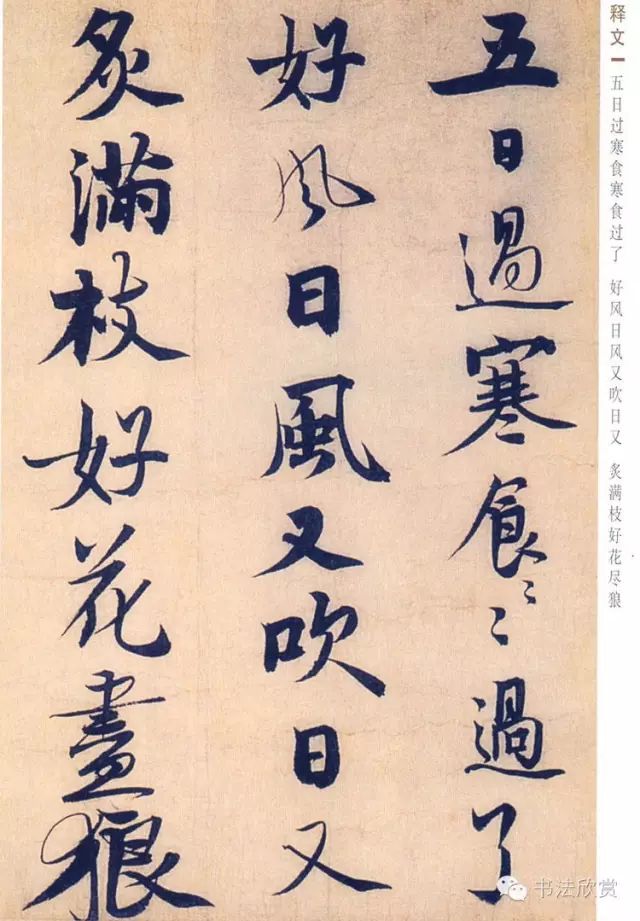 五日過寒食〻過了
好風日風又吹日又
炙滿枝好花盡狼
释文
五日过寒食寒食过了 好风日风又吹日又 炙满枝好花尽狼
书法欣赏